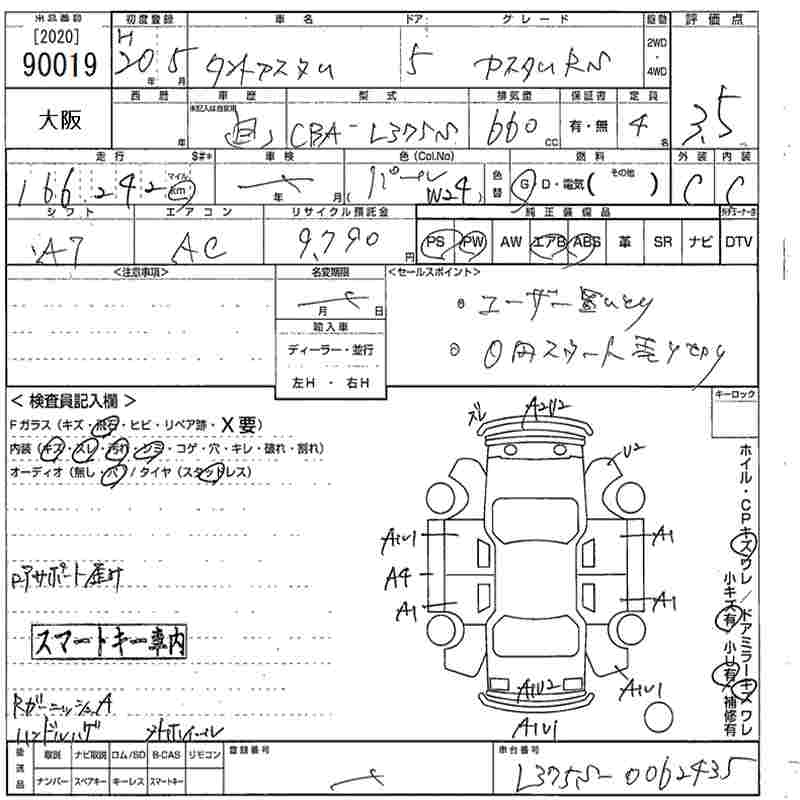 出品番号 初度登録 車名 ドア グレード 駆動 評価点
[2020] 90019 H20 5 年 月 タントカスタム 5 カスタムRS 2WD・4WD 3.5
大阪 西暦 年 車歴 未記入は自家用 自 型式 CBA-L375S 排気量 660 CC 保証書 有・無 定員 4 名
走行 166242 $#* マイル km 車検 年 月 色 (Col.No) パール (W24) 色替 燃料 G D・電気( その他 ) 外装 C 内装 C
シフト AT エアコン AC リサイクル預託金 9,790 円 純正装備品
PS PW AW エアB ABS 革 SR ナビ DTV
<注意事項> 名変期限 月 日 <セールスポイント>
◦ユーザー買取
輸入車
ディーラー・並行
◦0円スタート売切
左H・右H
<検査員記入欄> キーロック
Fガラス (キズ・飛石・ヒビ・リペア跡・X要)
内装 (キズ・スレ・汚れ・シミ・コゲ・穴・キレ・破れ・割れ)
オーディオ (無し・穴) / タイヤ (スタッドレス)
ズレ A2U2
U2
AIUI A1
A4
A1 A1
A1U2 A1U1
A1U1
ホイル・CPキズワレ/ドアミラーキズワレ
小キズ有/小U有/補修有
Rアサポート歪み
スマートキー車内
RガーニッシュA
ハンドルハゲ 社外ホイール
後送品 取説 ナビ取説 ロム/SD B-CAS リモコン 登録番号 車台番号
ナンバー スペアキー キーレス スマートキー L375S-0062435